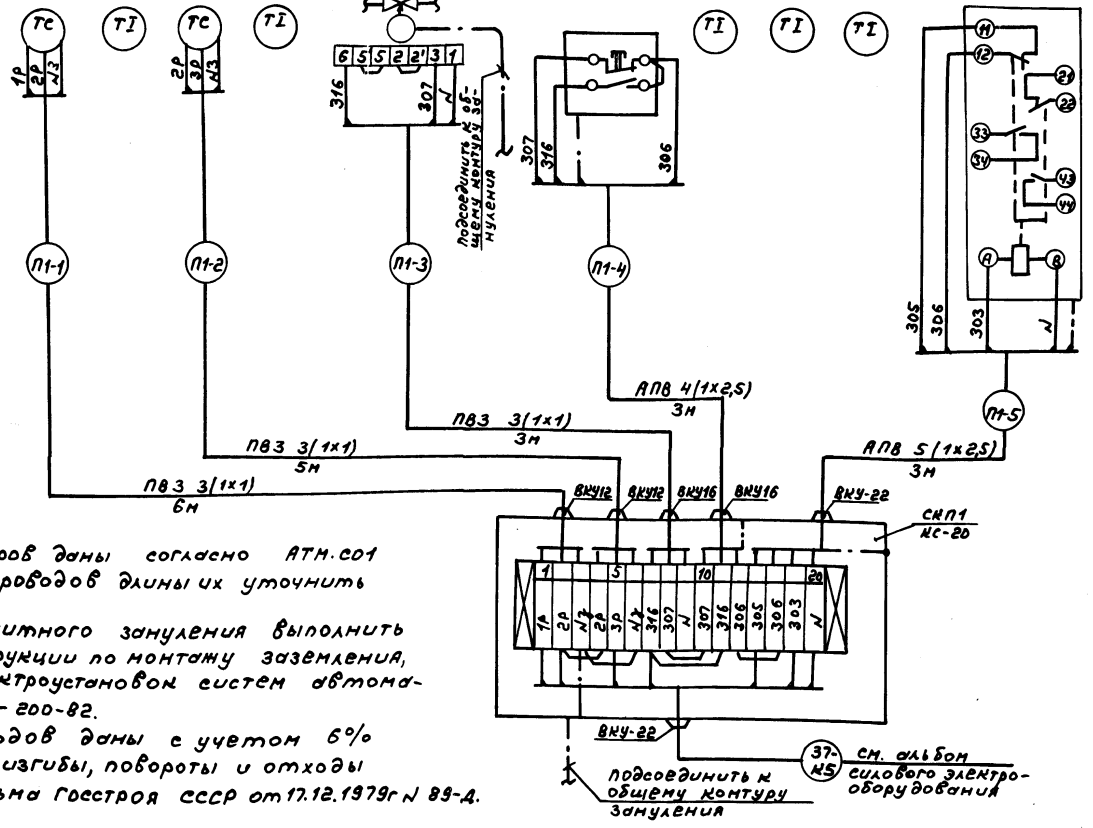 ТС
TI
ТС
TI
TI
TI
TI
1Р
2Р
N3
2Р
3Р
N3
6 5 5 2 2' 3 1
316
307
N
подсоединить к об-
щему контуру за-
нуления
307
316
306
11
12
21
22
33
34
43
44
А
В
305
306
303
N
П1-1
П1-2
П1-3
П1-4
П1-5
АПВ 4(1х2,5)
3м
ПВ3 3(1х1)
3м
ПВ3 3(1х1)
5м
ПВ3 3(1х1)
6м
АПВ 5(1х2,5)
3м
ВКУ12
ВКУ12
ВКУ16
ВКУ16
ВКУ-22
СКП1
КС-20
1 5 10 20
1Р
2Р
2Р
3Р
316
307
N
307
316
306
305
306
303
N
ВКУ-22
37-
К5
см. альбом
силового электро-
оборудования
подсоединить к
общему контуру
зануления
ров даны согласно АТМ.С01
роводов длины их уточнить
итного зануления выполнить
рукции по монтажу заземления,
ктроустановок систем автома-
- 200-82.
одов даны с учетом 6%
изгибы, повороты и отходы
ьма Госстроя СССР от 17.12.1979г N 89-Д.